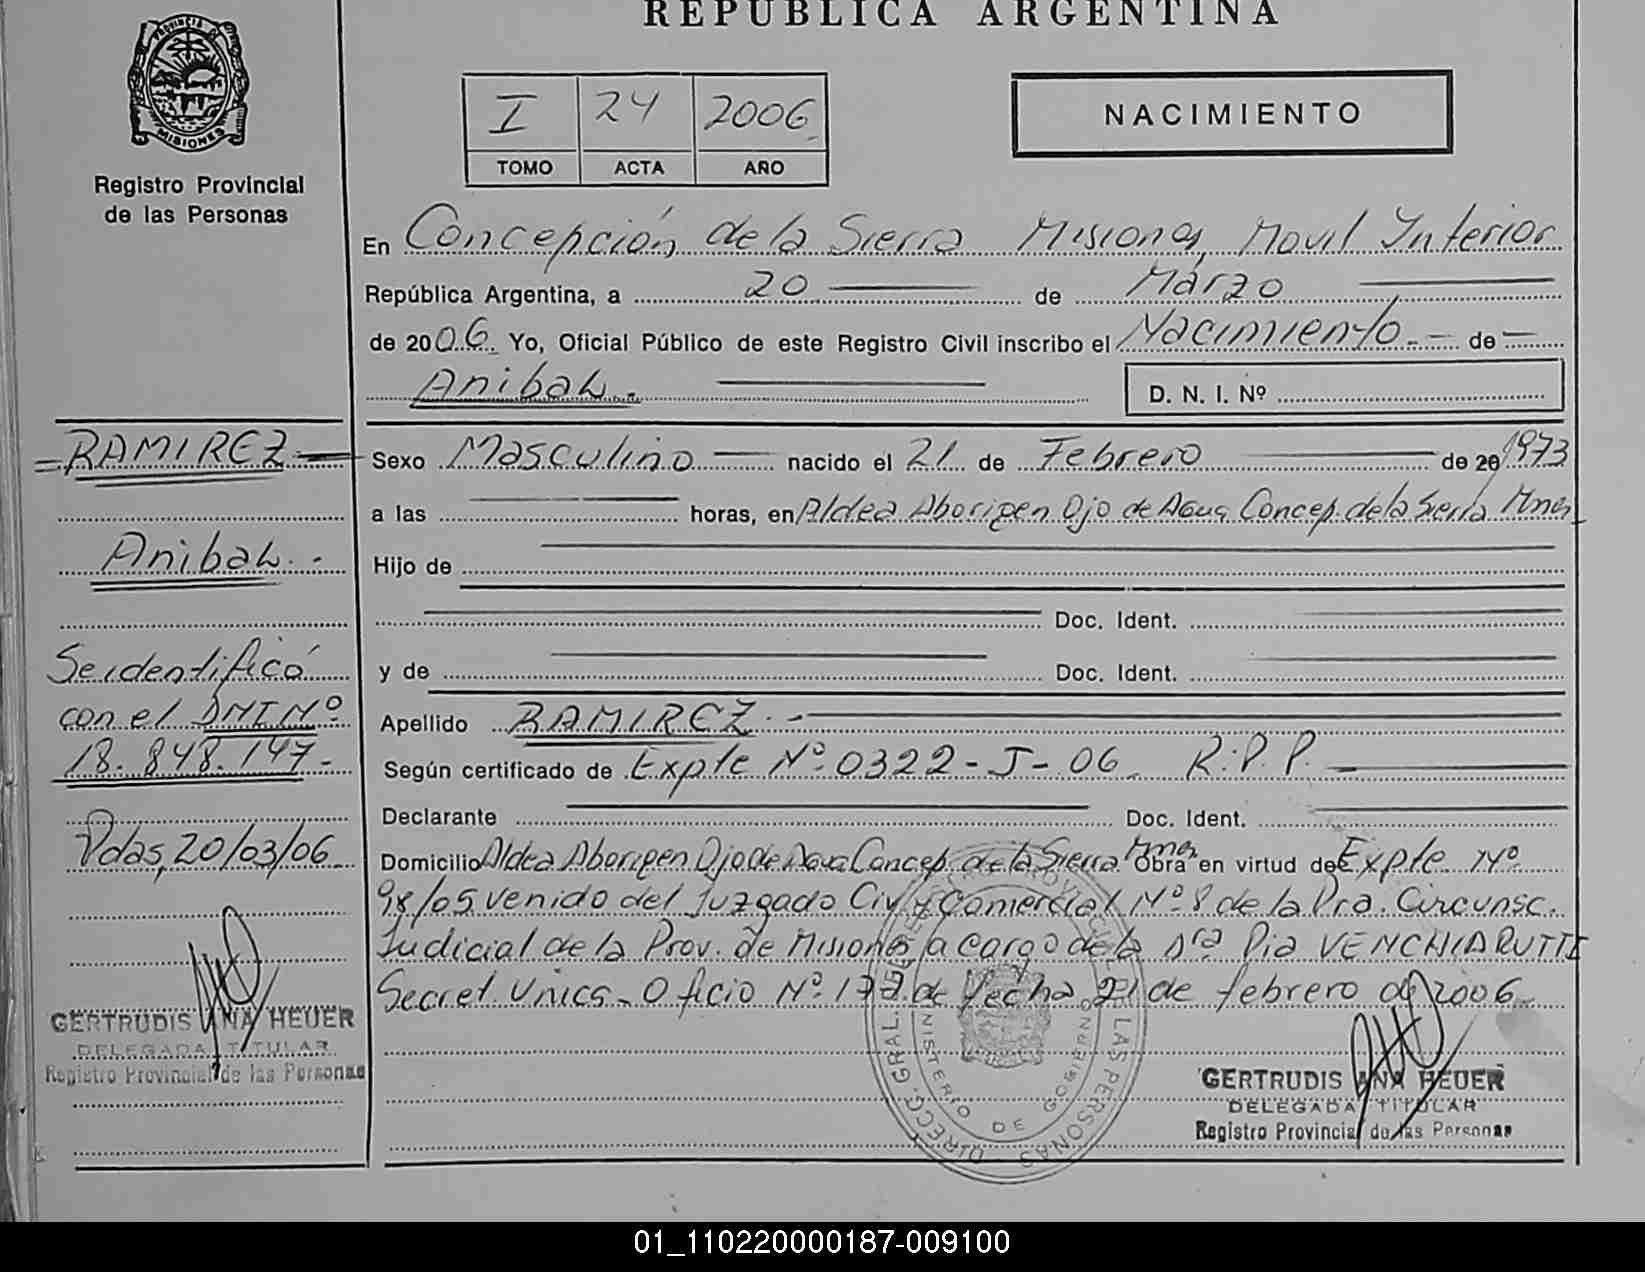 REPUBLICA ARGENTINA
PROVINCIA DE MISIONES
Registro Provincial
de las Personas
I 24 2006
TOMO ACTA AÑO
NACIMIENTO
En Concepción de la Sierra Misiones, Movil Interior
República Argentina, a 20 de Marzo
de 2006. Yo, Oficial Público de este Registro Civil inscribo el Nacimiento.- de
Anibal.-
D. N. I. Nº
Sexo Masculino nacido el 21 de Febrero de 20 1973
a las horas, en Aldea Aborigen Ojo de Agua, Concep. de la Sierra Mnes
Hijo de
Doc. Ident.
y de Doc. Ident.
Apellido RAMIREZ.-
Según certificado de Expte Nº 0322-J-06 R.P.P.
Declarante Doc. Ident.
Domicilio Aldea Aborigen Ojo de Agua Concep. de la Sierra Mnes Obra en virtud de Expte Nº
98/05 venido del Juzgado Civ. y Comercial Nº 8 de la Pra. Circunsc.
Judicial de la Prov. de Misiones a cargo de la Dra Pia VENCHIARUTTI
Secret. Unica. Oficio Nº 177 de fecha 21 de febrero de 2006.
GERTRUDIS ANA HEUER
DELEGADA TITULAR
Registro Provincial de las Personas
DIRECC. GRAL. REG. PROVINCIAL DE LAS PERSONAS
MINISTERIO DE GOBIERNO
=RAMIREZ=
Anibal.-
Se identificó
con el DNI Nº
18.848.147-
Pdas, 20/03/06
GERTRUDIS ANA HEUER
DELEGADA TITULAR
Registro Provincial de las Personas
01_110220000187-009100